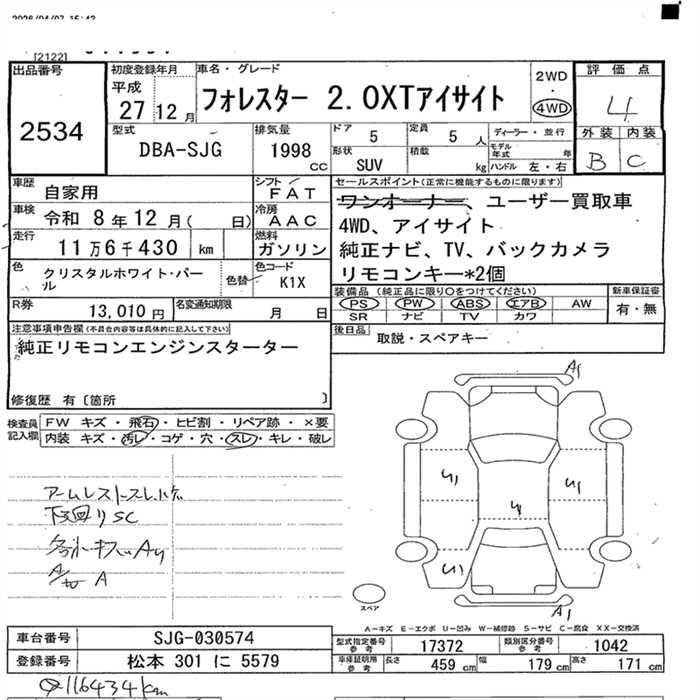 2026/04/07 15:43
[2122]
出品番号
2534
初度登録年月
平成
27 12 月
車名・グレード
フォレスター 2.0XTアイサイト
2WD
・
4WD
評価点
4
外装 内装
B C
型式
DBA-SJG
排気量
1998 CC
ドア
5
定員
5 人
形状
SUV
積載
kg
ディーラー・並行
モデル年式 年
ハンドル 左・右
車歴
自家用
シフト
FAT
車検
令和 8年12月( 日)
冷房
AAC
走行
11万6千430 km
燃料
ガソリン
色
クリスタルホワイト・パール
色替
色コード
K1X
R券
13,010 円
名変通知期限
月 日
セールスポイント(正常に機能するものに限ります)
ワンオーナー、ユーザー買取車
4WD、アイサイト
純正ナビ、TV、バックカメラ
リモコンキー*2個
装備品 (純正品に限り○をつけてください)
PS PW ABS エアB AW
SR ナビ TV カワ
新車保証書
有・無
後日品
取説・スペアキー
注意事項申告欄(不具合内容等は具体的に記入して下さい)
純正リモコンエンジンスターター
修復歴 有〔箇所 〕
検査員
記入欄
FW キズ・飛石・ヒビ割・リペア跡・×要
内装 キズ・汚レ・コゲ・穴・スレ・キレ・破レ
アームレストスレ
下回りSC
A
A1
U1
U1
U1
A1
スペア
A-キズ E-エクボ U-凹み W-補修跡 S-サビ C-腐食 XX-交換済
車台番号
SJG-030574
登録番号
松本 301 に 5579
型式指定番号
参考
17372
類別区分番号
参考
1042
車検証明用
参考
長さ 459 cm
幅 179 cm
高さ 171 cm
116434km